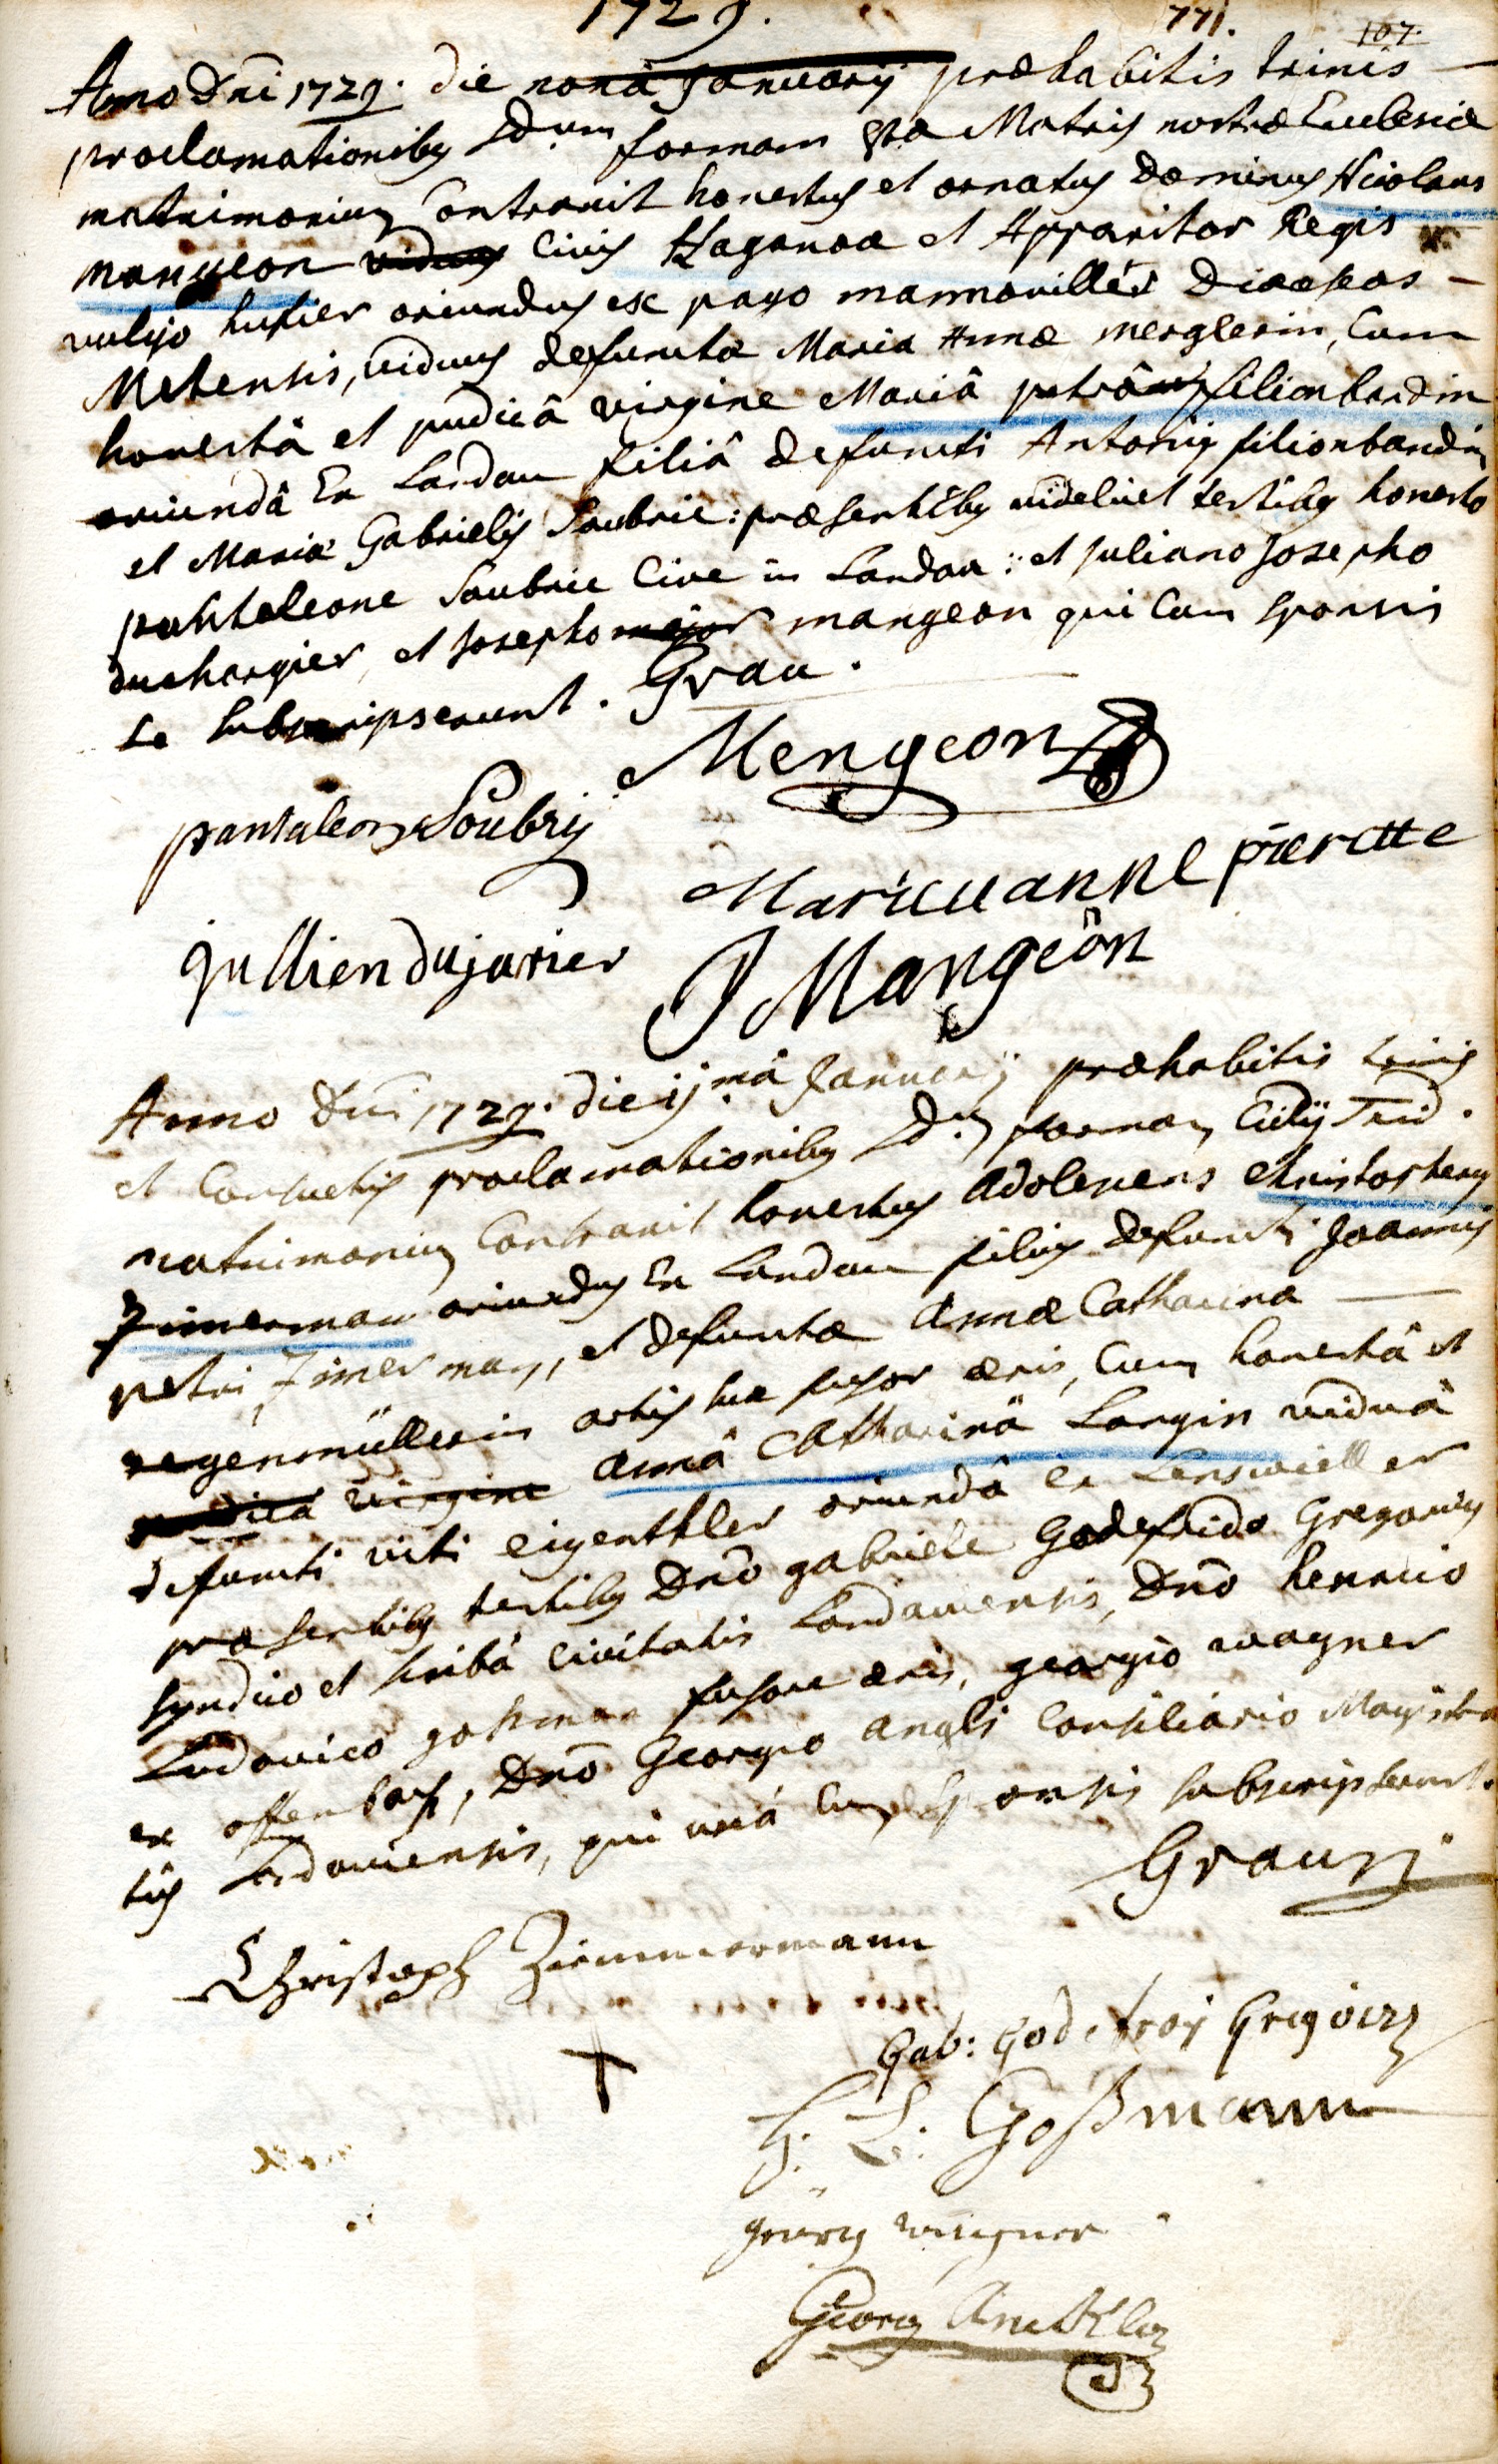 1729.
771.
107.
Anno Dni 1729. die nona Januarij præhabitis trinis
proclamationibus Sdum formam Stæ Matris nostræ Ecclesiæ
matrimonium Contraxit honestus et ornatus Dominus Nicolaus
mangeon viduus Civis Haganoæ et Apparitor Regis
vulgo husier oriundus ex pago mannouiller Diœceseos
Metensis, viduus defunctæ Maria Annæ merglerin, Cum
honestâ et pudicâ virgine Mariâ petrâ filionbardin
oriundâ Ex Landau filiâ defuncti Antonij filionbardin
et Mariæ Gabrielis Soubrie: præsentibus videlicet testibus honesto
pantaleone Soubrie Cive in Landau: et Juliano Josepho
duchargier, et Josepho major mangeon qui Cum sponsis
se subscripserunt. Grau.
Mengeon
pantaleon Soubry
Marieuanne pierette
Jullien dujarier
J Mangeôn
Anno Dni 1729. die ijmâ Januarij præhabitis trinis
et Consuetis proclamationibus Sdum formam Cilij Trid.
matrimonium Contraxit honestus Adolescens christophorus
Zimerman oriundus Ex Landau filius defuncti Joannis
petri Zimerman, et defunctæ Annæ Catharina
regenmüllerin artis suæ fusor æris, Cum honestâ et
pudica virgine Annâ Catharinâ Langin viduâ
defuncti viti eigenthler oriundâ ex Lensvieller
præsentibus testibus Dnô gabriele Godefrido Gregorius
syndico et scribâ Civitatis Landaviensis, Dnô henrico
Ludovico gosman fusore æris, georgio wagner
ex offenbach, Dnô Georgio Angli Consiliario Magistra
tûs Landaviensis, qui unâ Cum sponsis subscripserunt.
Grau
Christoph Zimmermann
Gab: Godefroy Gregoire
H: L: Goßmann
georg wagner
Georg Anckle